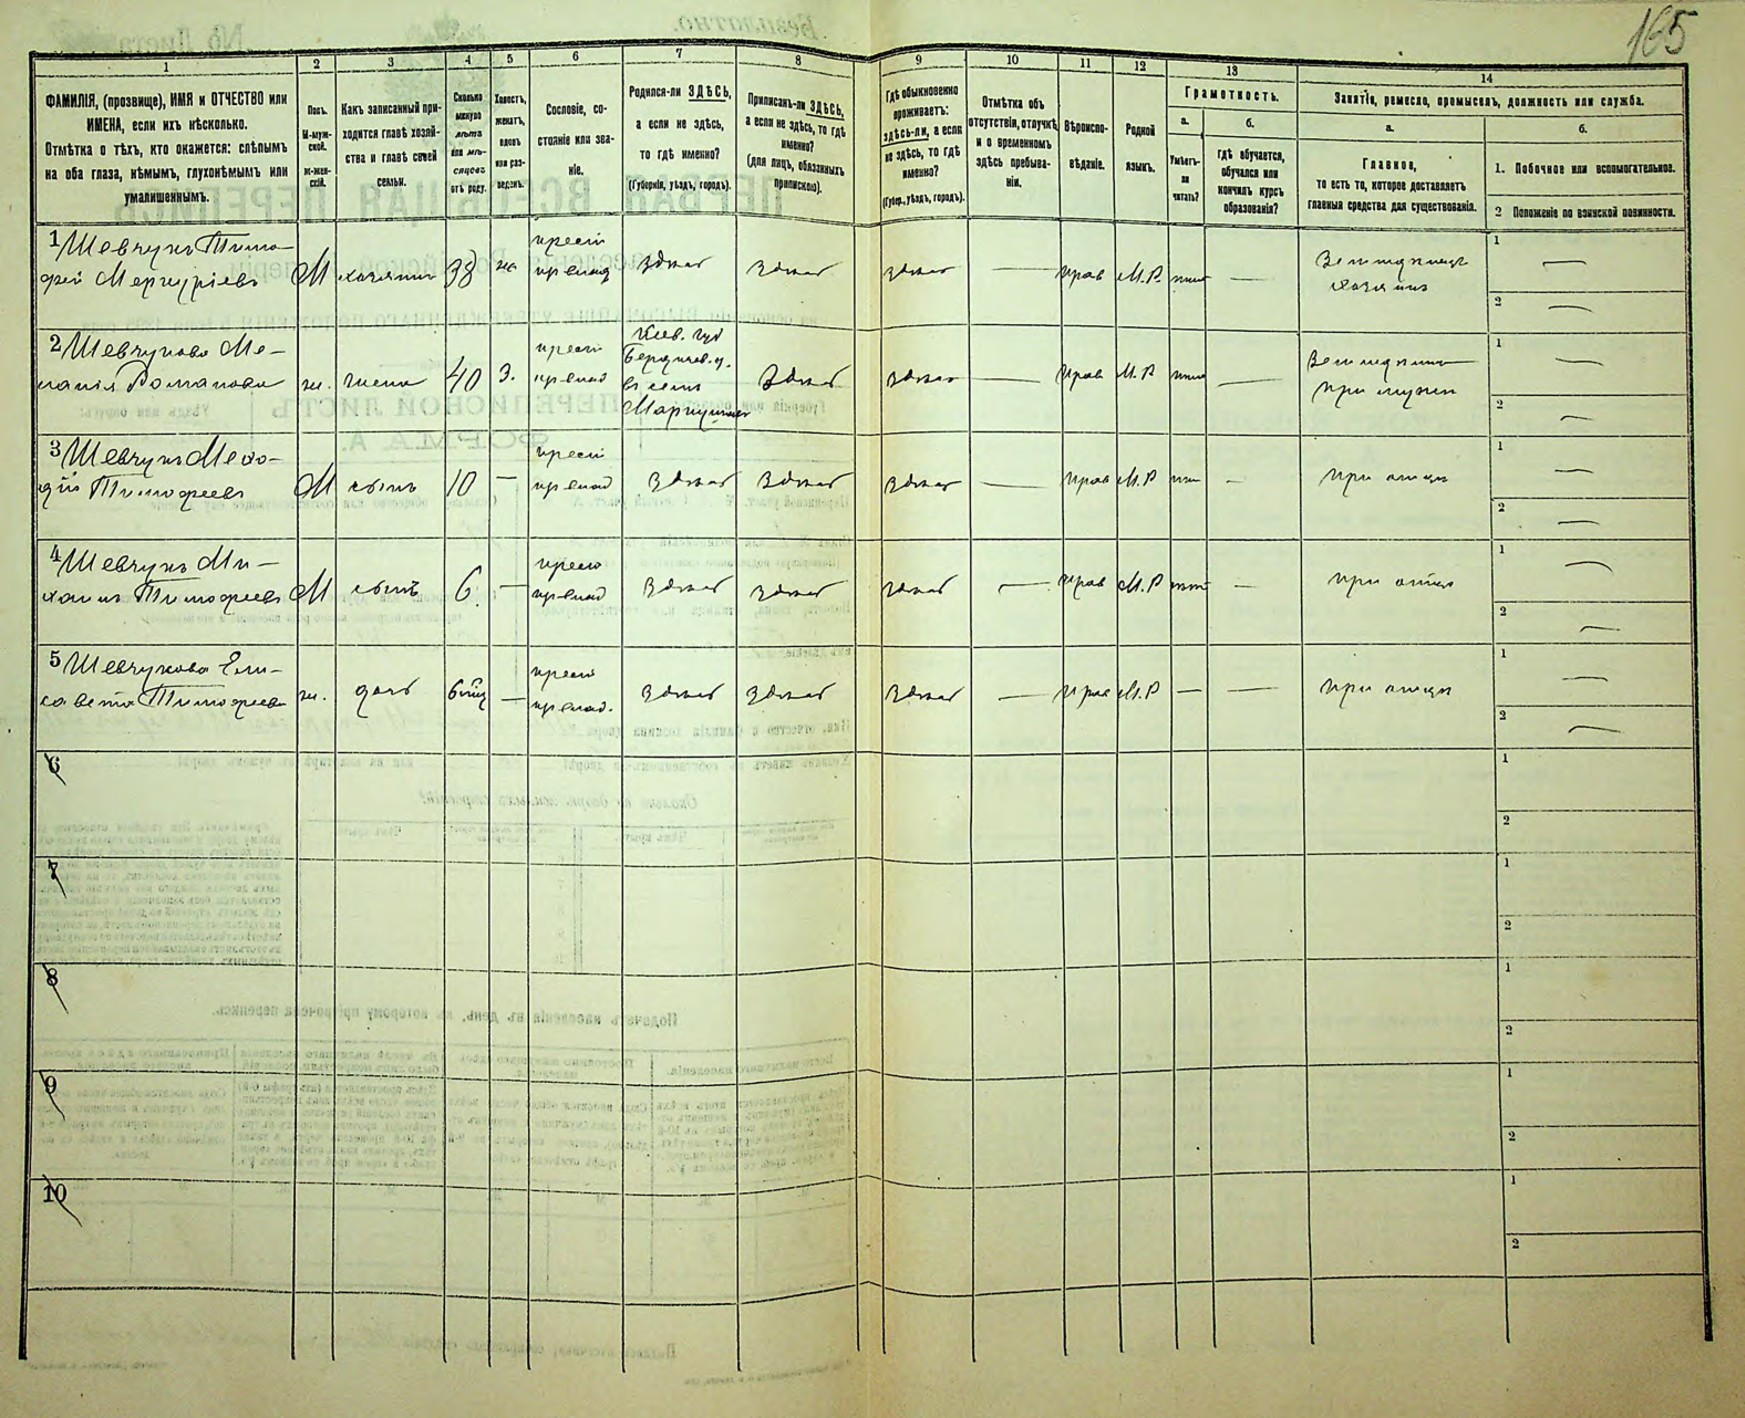 165
1
2
3
4
5
6
7
8
9
10
11
12
13
14
ФАМИЛІЯ, (прозвище), ИМЯ и ОТЧЕСТВО или
ИМЕНА, если ихъ нѣсколько.
Отмѣтка о тѣхъ, кто окажется: слѣпымъ
на оба глаза, нѣмымъ, глухонѣмымъ или
умалишеннымъ.
Полъ.
М-муж-
ской.
Ж-жен-
скій.
Какъ записанный при-
ходится главѣ хозяй-
ства и главѣ своей
семьи.
Сколько
минуло
лѣтъ
или мѣ-
сяцевъ
отъ роду.
Холостъ,
женатъ,
вдовъ
или раз-
веденъ.
Сословіе, со-
стояніе или зва-
ніе.
Родился-ли ЗДѢСЬ,
а если не здѣсь,
то гдѣ именно?
(Губернія, уѣздъ, городъ).
Приписанъ-ли ЗДѢСЬ,
а если не здѣсь, то гдѣ
именно?
(для лицъ, обязанныхъ
припискою).
Гдѣ обыкновенно
проживаетъ:
здѣсь-ли, а если
не здѣсь, то гдѣ
именно?
(Губер., уѣздъ, городъ).
Отмѣтка объ
отсутствіи, отлучкѣ
и о временномъ
здѣсь пребыва-
ніи.
Вѣроиспо-
вѣданіе.
Родной
языкъ.
Грамотность.
а.
б.
Умѣетъ-
ли
читать?
Гдѣ обучается,
обучался или
кончилъ курсъ
образованія?
Занятіе, ремесло, промыселъ, должность или служба.
а.
б.
Главное,
то есть то, которое доставляетъ
главныя средства для существованія.
1. Побочное или вспомогательное.
2 Положеніе по воинской повинности.
1 Шевчукъ Тимо-
фей Меркуріевъ
М хозяинъ 38
здѣсь здѣсь здѣсь — прав М.Р. —
хозяинъ
1 —
2 —
2 Шевчукова Ме-
ланія Романова
ж. жена 40 З.
Кіев. губ
Бердичев. у.
здѣсь здѣсь — прав М.Р —
при мужи
1 —
2 —
3 Шевчукъ Мефо-
дій Тимофеевъ
М сынъ 10 —
здѣсь здѣсь здѣсь — прав М.Р —
при отцѣ
1 —
2 —
4 Шевчукъ Ми-
хаилъ Тимофеевъ
М сынъ 6 —
здѣсь здѣсь здѣсь — прав М.Р —
при отцѣ
1 —
2 —
5 Шевчукова Ели-
савета Тимофеева
ж. дочь —
здѣсь здѣсь здѣсь — прав М.Р — —
при отцѣ
1 —
2 —
6
1
2
7
1
2
8
1
2
9
1
2
10
1
2